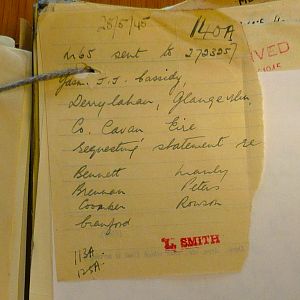 25/5/45
140A
M65 sent to 2723257
J.J. Cassidy,
Derrylahan, Glangevlin,
Co. Cavan Eire
requesting statement re
Bennett Manly
Brennan Peters
Coomber Rowson
Cranford
L. SMITH
113A
125A